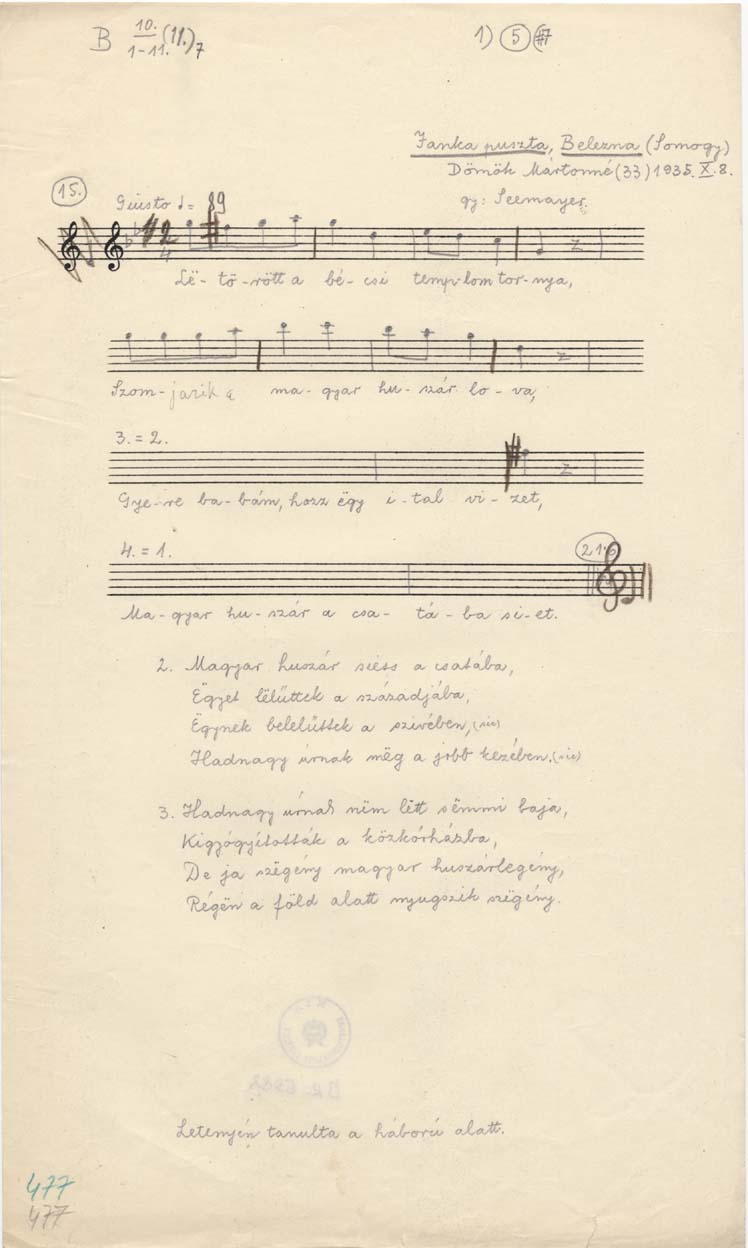 B 10. 1-11. (11.) 7
1) 5 #7
Janka puszta, Belezna (Somogy)
Dömök Mártonné (33) 1935. X. 8.
gy: Seemayer.
15.
Giusto ♩= 89
2
4
Lë-tö-rött a bé-csi templom tor-nya,
Szom-jazik a ma-gyar hu-szár lo-va,
3. = 2.
Gye-re ba-bám, hozz ëgy i-tal vi-zet,
4. = 1.
Ma-gyar hu-szár a csa-tá-ba si-et.
2. Magyar huszár siess a csatába,
Ëgyet lëlűttek a századjába,
Ëgynek belelűttek a szivében, (sic)
Hadnagy úrnak mëg a jobb kezében. (sic)
3. Hadnagy úrnak nëm lëtt sëmmi baja,
Kigyógyították a közkórházba,
De ja szëgény magyar huszárlegény,
Régën a föld alatt nyugszik szëgény.
Letenyén tanulta a háború alatt.
477
477